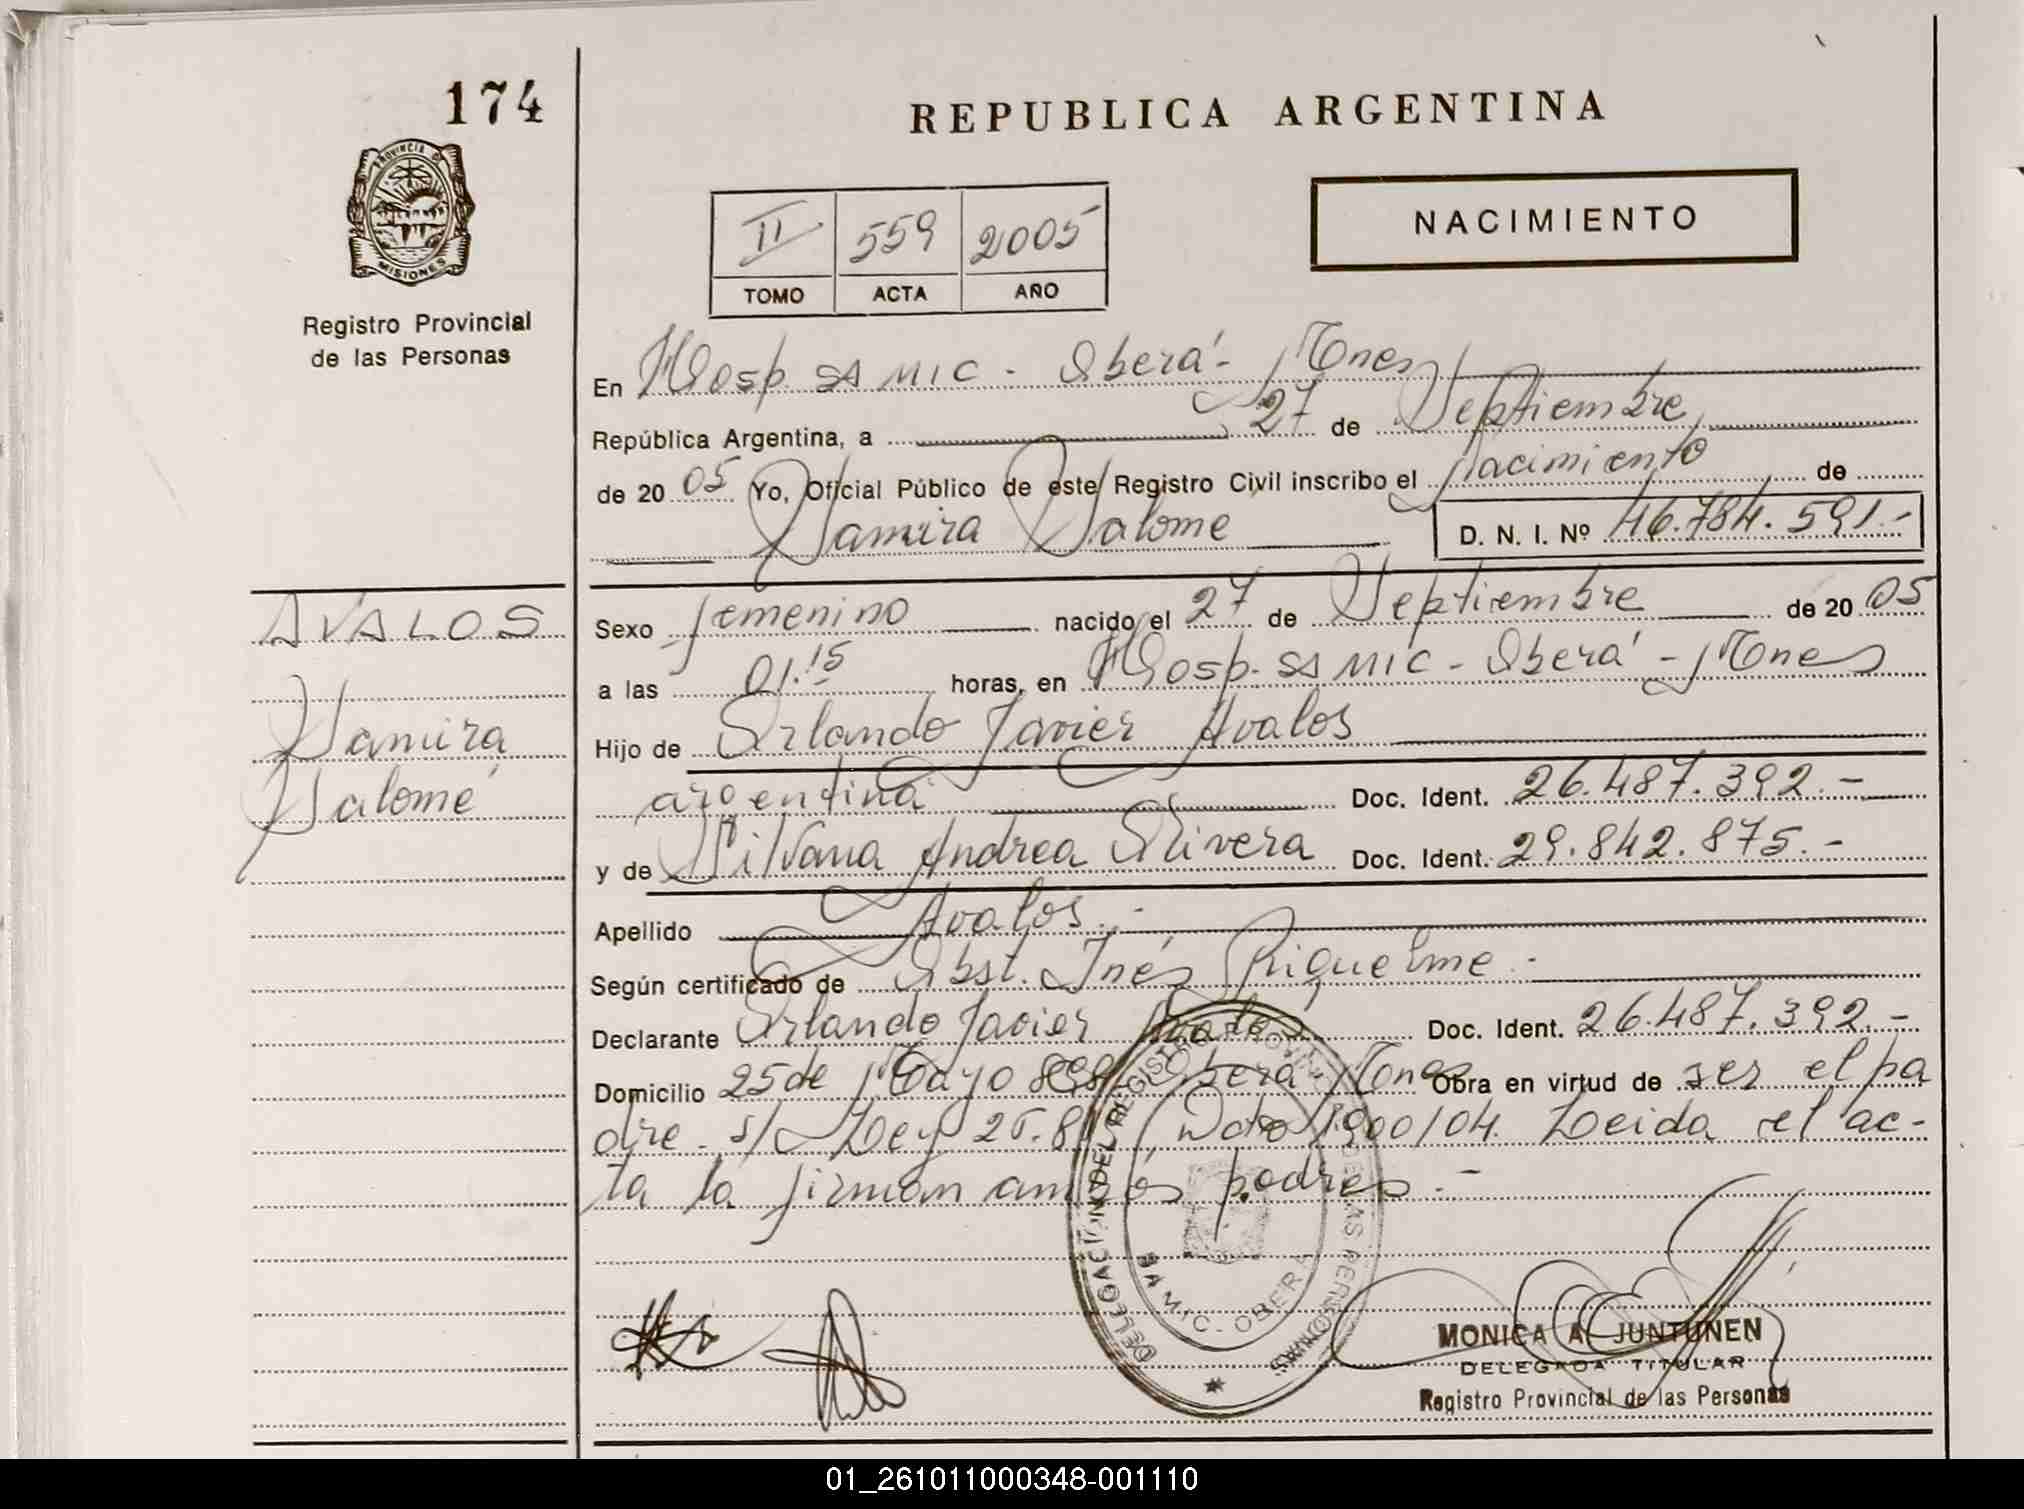 174
PROVINCIA DE
MISIONES
Registro Provincial
de las Personas
REPUBLICA ARGENTINA
II 559 2005
TOMO ACTA AÑO
NACIMIENTO
En Hosp. SAMIC - Oberá - Mnes
República Argentina, a 27 de Septiembre
de 20 05 Yo, Oficial Público de este Registro Civil inscribo el nacimiento de
Samira Salome D. N. I. Nº 46.784.591.-
AVALOS
Samira
Salomé
Sexo femenino nacido el 27 de Septiembre de 20 05
a las 01.15 horas, en Hosp. SAMIC - Oberá - Mnes
Hijo de Orlando Javier Avalos
argentina Doc. Ident. 26.487.392.-
y de Silvana Andrea Olivera Doc. Ident. 29.842.875.-
Apellido Avalos.-
Según certificado de Obst. Inés Riquelme.-
Declarante Orlando Javier Avalos Doc. Ident. 26.487.392.-
Domicilio 25 de Mayo 898 Oberá - Mnes Obra en virtud de ser el pa
dre. s/ Ley Dcto 1900/04. Leida el ac-
ta la firman ambos padres.-
DELEGACION DEL REGISTRO PROVINCIAL DE LAS PERSONAS
SAMIC - OBERA
MONICA A. JUNTUNEN
DELEGADA TITULAR
Registro Provincial de las Personas
01_261011000348-001110